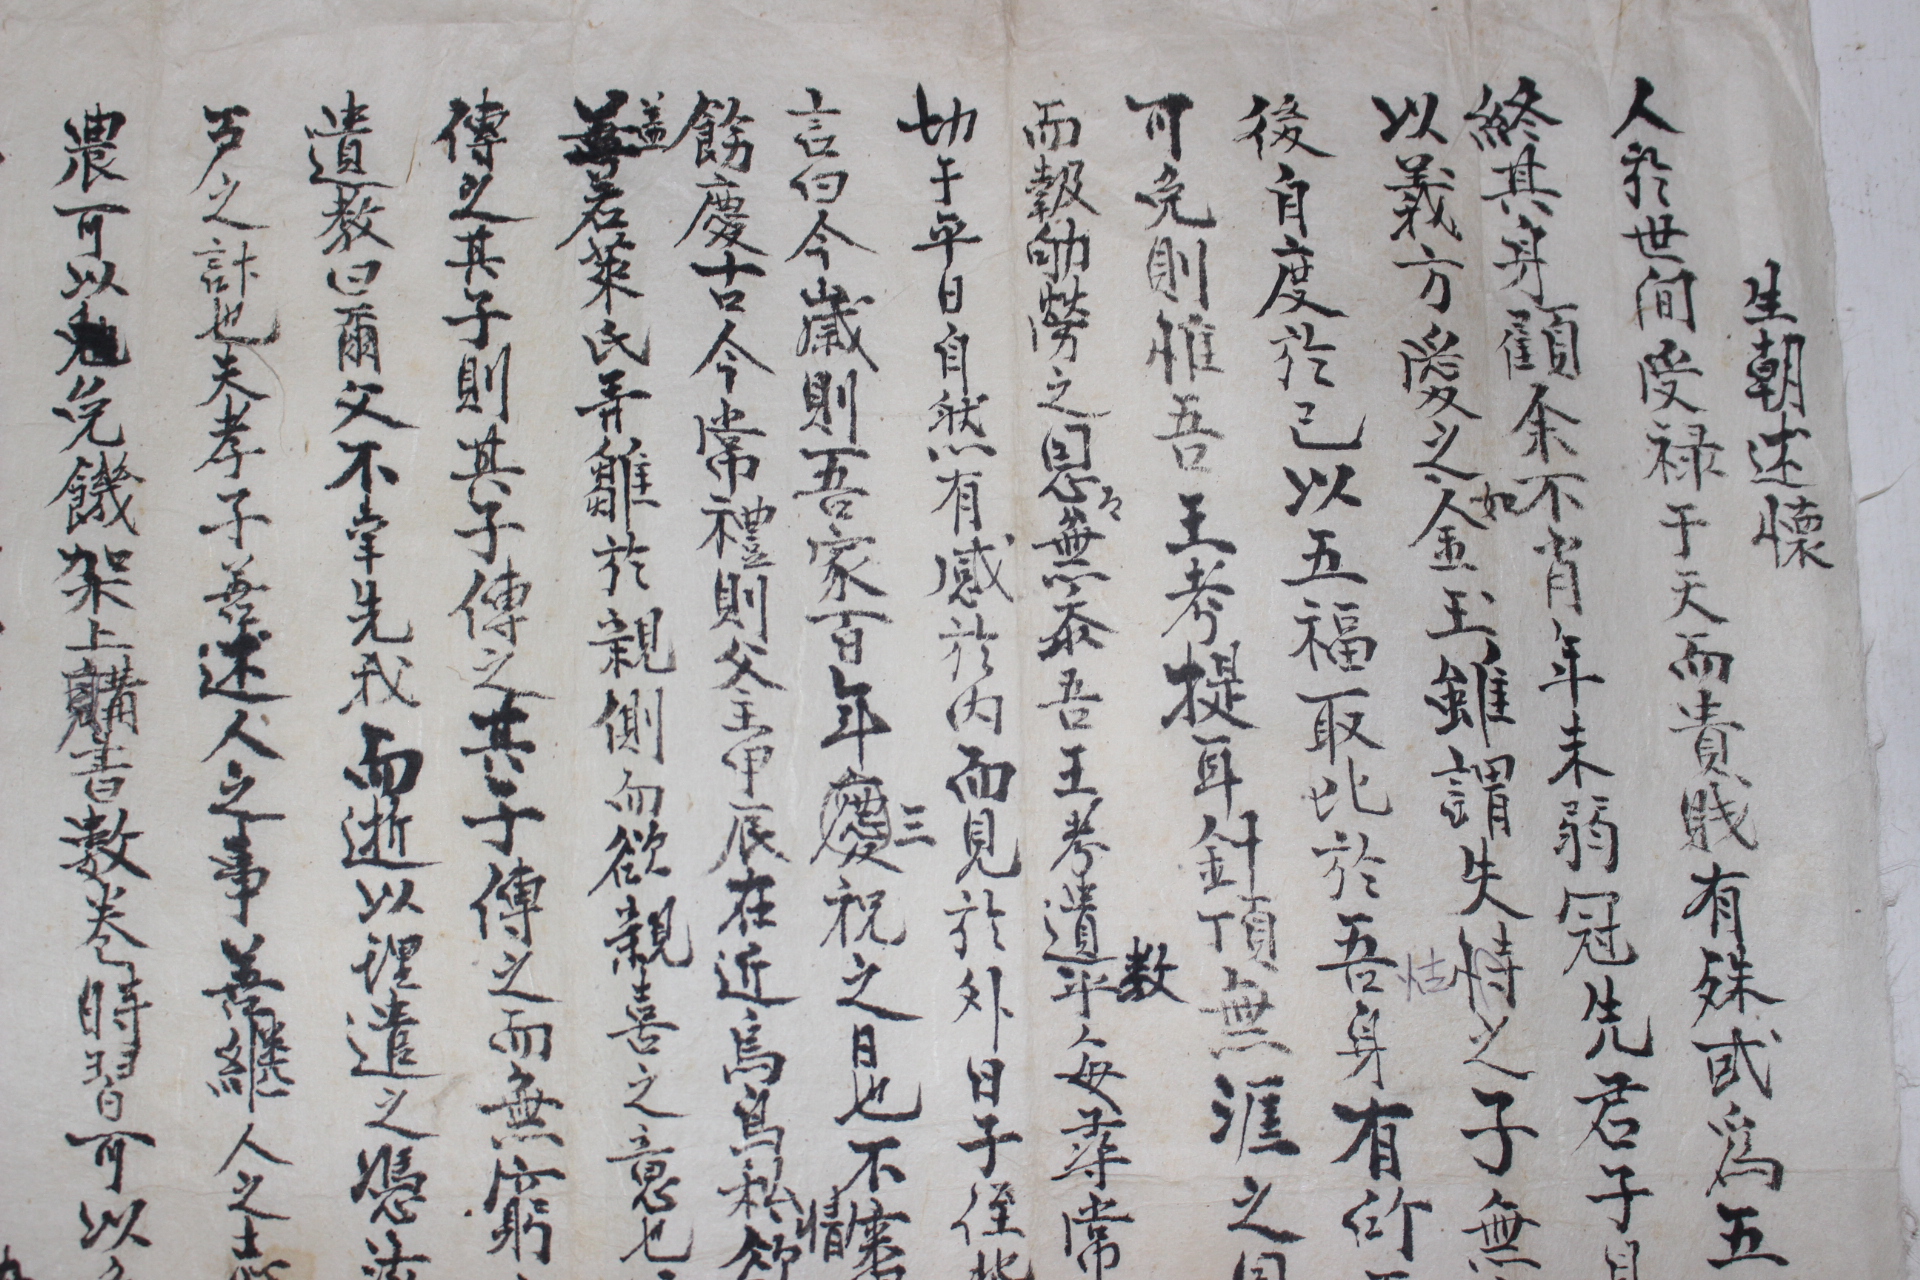 生朝述懷
人於世間受祿于天而貴賤有殊或爲五
終其身顧余不肖年未弱冠先君子
以義方愛之如金玉雖謂失怙恃之子無
後自度於己以五福取比於吾身有所
可免則惟吾王考提耳針頂無涯之恩
而報劬勞之恩無忝吾王考遺平數每尋常
切于平日自然有感於內而見於外日子侄
言曰今歲則吾家百年三慶祝之日也不
餙慶古今常禮則父主甲辰在近烏鳥私情
盖若萊氏弄雛於親側而欲親喜之意也
傳之其子則其子傳之其子傳之而無窮
遺敎曰爾父不幸先我而逝以理遣之憑
戶之計也夫孝子善述人之事善繼人之志
農可以免饑架上購書數卷時習可以